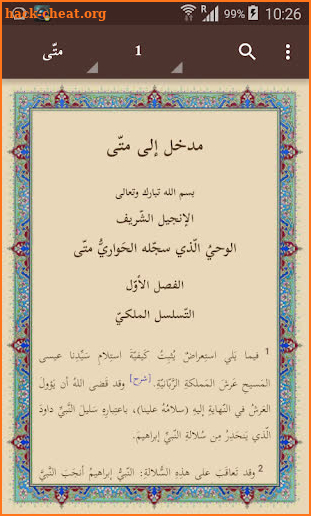 hack-cheat.org
R 99% 10:26
متّى 1
مدخل إلى متّى
بسم الله تبارك وتعالى
الإنجيل الشّريف
الوحيُ الّذي سجّله الحَواريُّ متّى
الفصل الأوّل
التّسلسل الملكيّ
1 فيما يَلي استِعراضٌ يُثبِتُ كَيفيّةَ استِلامِ سَيِّدِنا عيسى
المَسيحِ عَرشَ المَملكةِ الرَّبّانيّةِ. [شرح] وقد قَضى اللهُ أن يَؤولَ
العَرشُ في النّهايةِ إليهِ (سلامُهُ علينا)، باعتِبارِهِ سَليلَ النَّبيِّ داودَ
الّذي يَنحَدِرُ مِن سُلالةِ النَّبيِّ إبراهيمَ.
2 وقد تَعاقَبَ على هذِهِ السُّلالةِ: النَّبيُّ إبراهيمُ أنجَبَ النَّبيَّ